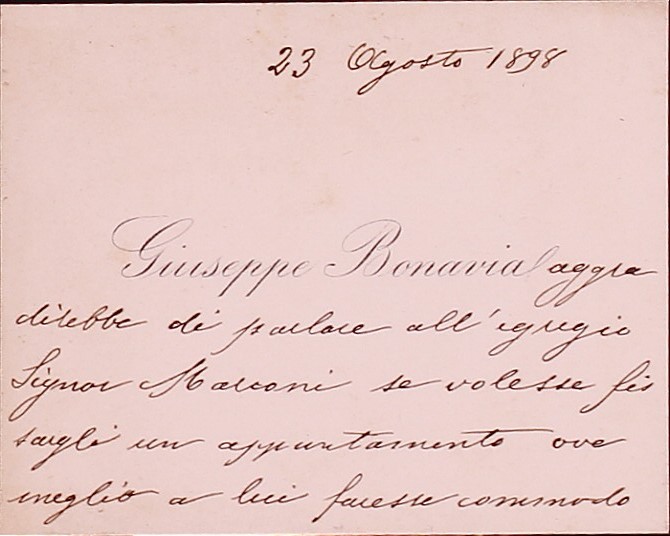 23 Agosto 1898
Giuseppe Bonavia aggra
direbbe di parlare all'egregio
Signor Marconi se volesse fis
sargli un appuntamento ove
meglio a lui facesse commodo